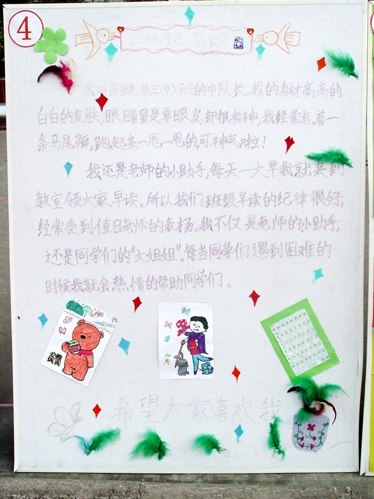 ④
我是三(4)班的中队长,我的身材高高的
白白的皮肤,眼睛虽是单眼皮却很有神,我经常扎着一
条马尾辫,跑起来一甩一甩的可神气啦!
我还是老师的小助手,每天一大早我就来到
教室领大家早读,所以我们班级早读的纪律很好,
经常受到值日老师的表扬。我不仅是老师的小助手,
还是同学们的“大姐姐”。每当同学们遇到困难的
时候我就会热情的帮助同学们。
希望大家喜欢我